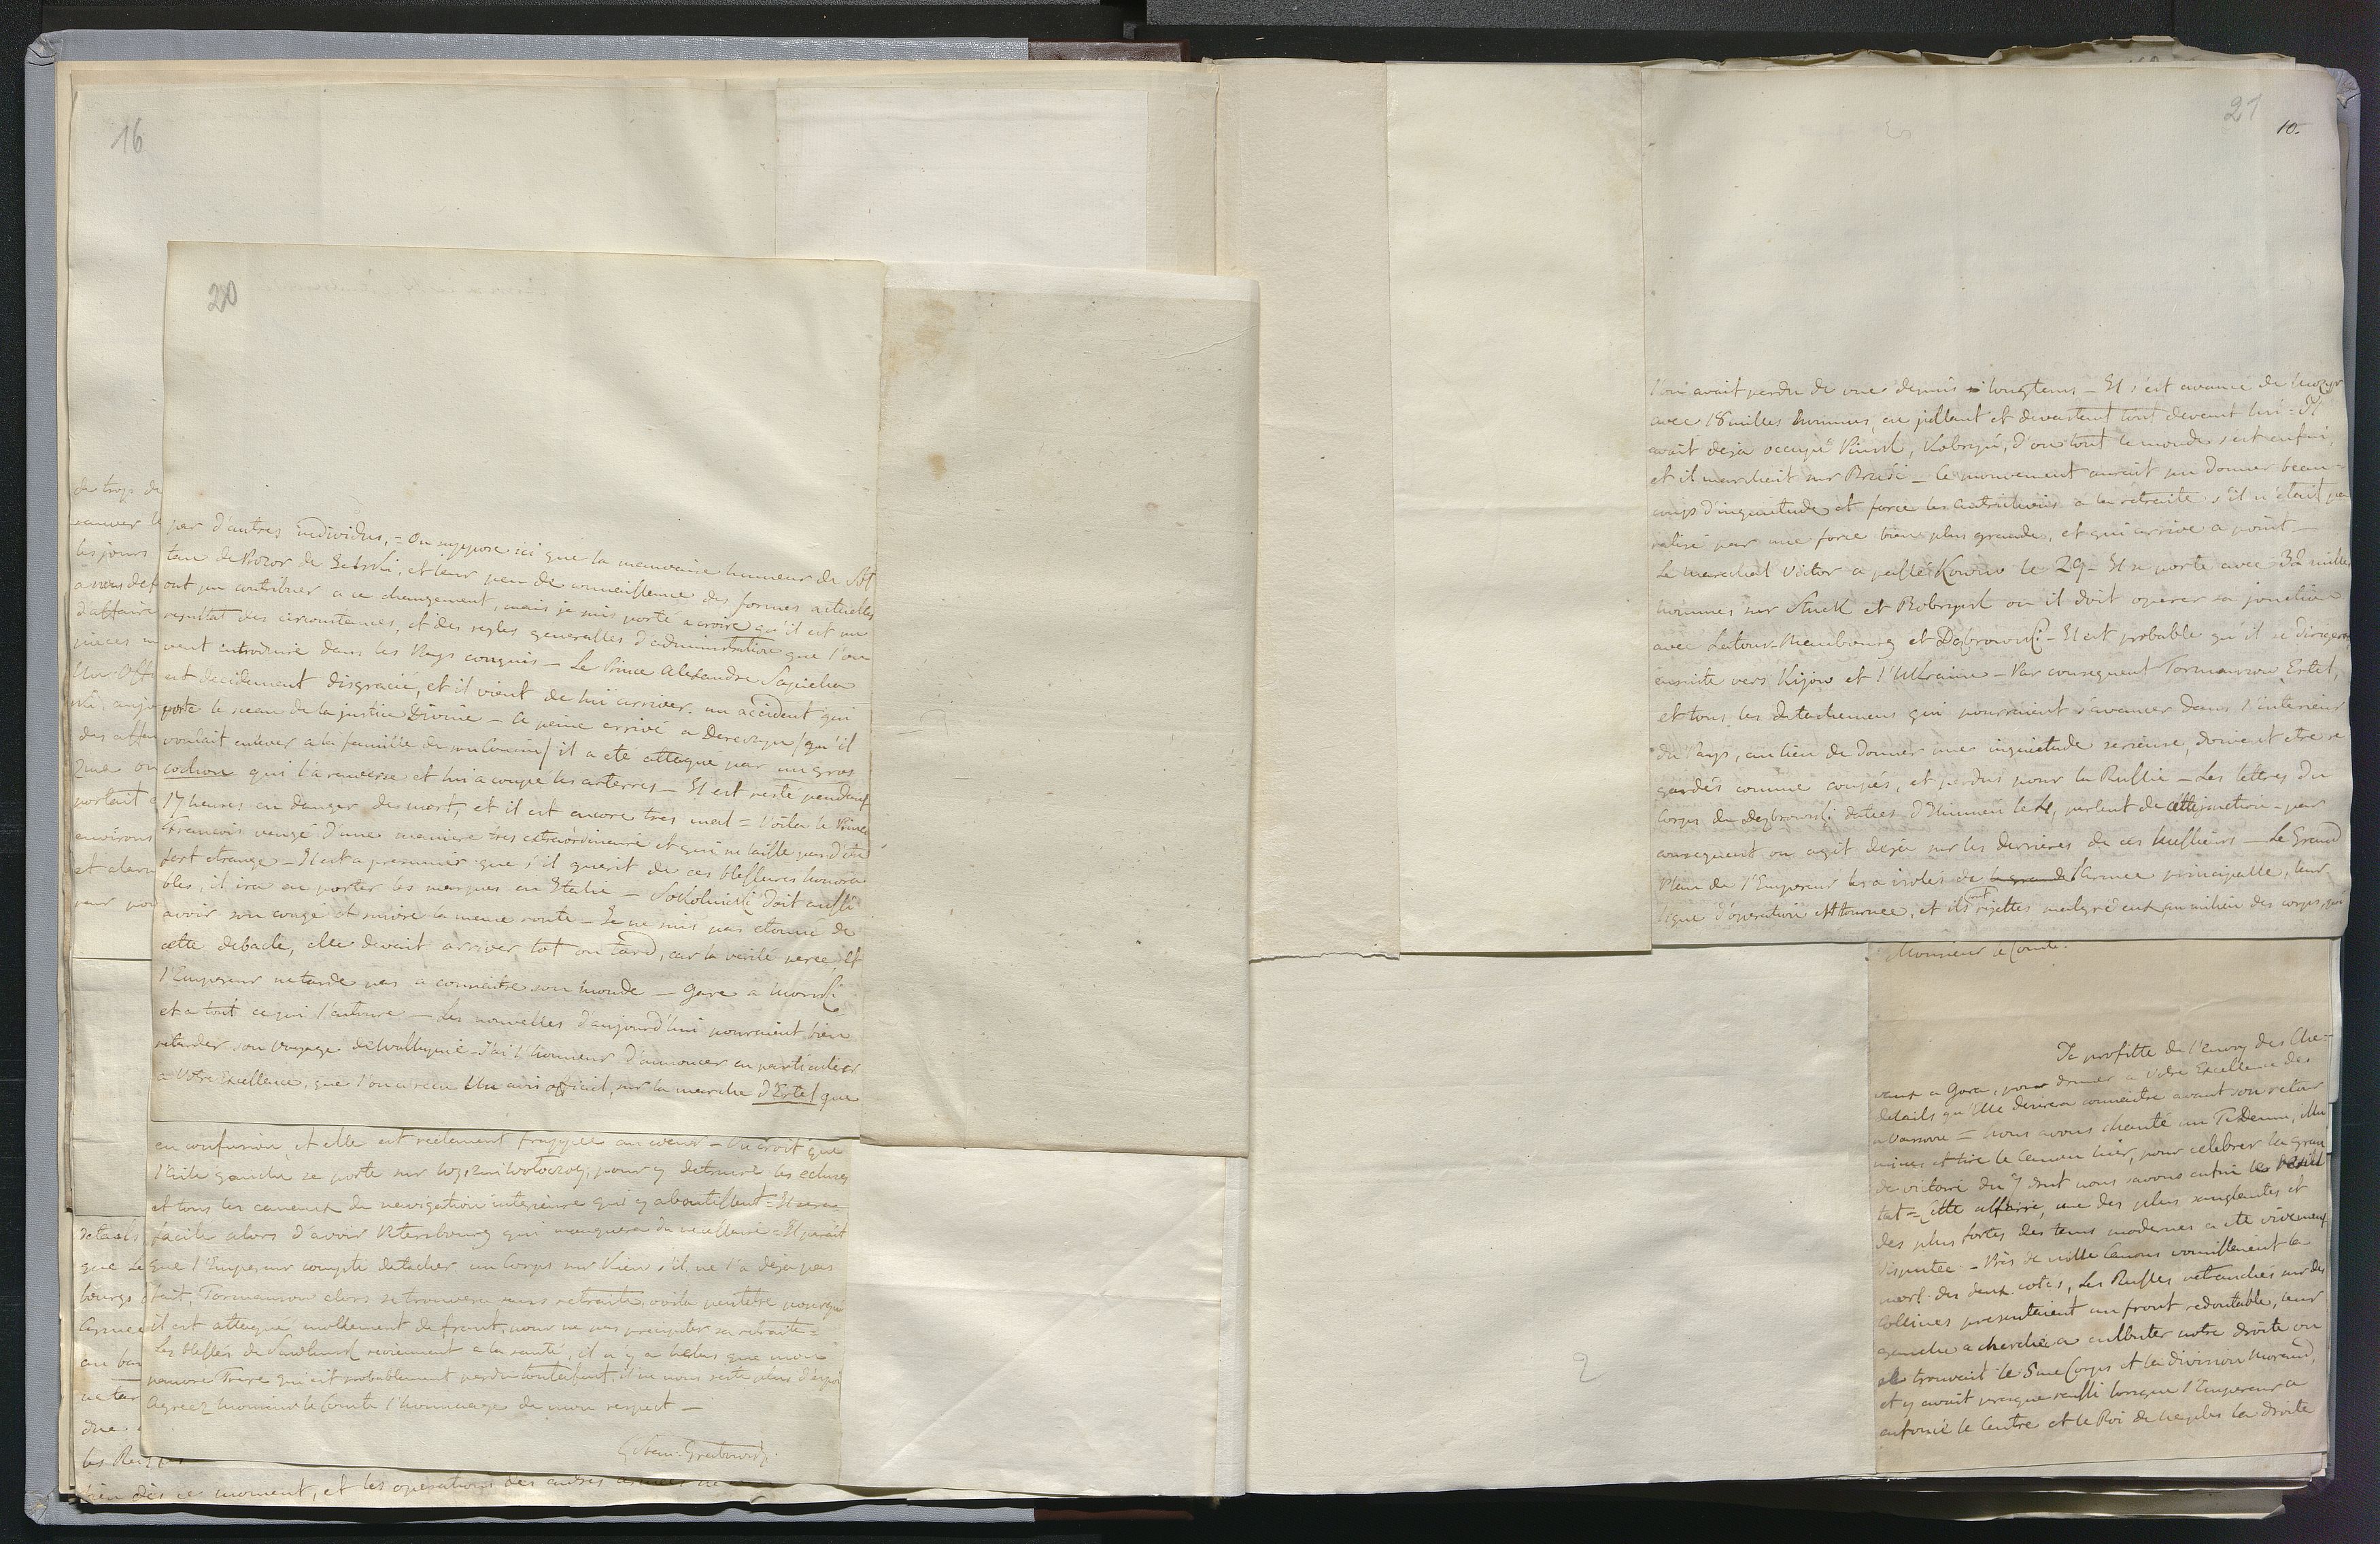 16
20
par d'autres individus. = On suppose ici que la mauvaise humeur de Sol
tan de Prozor de Jelski, et leur peu de connaissance des formes actuelles
ont pu contribuer a ce changement, mais je suis porté a croire qu'il est un
resultat des circonstances, et des regles generalles d'administration que l'on
veut introduire dans les Pays conquis — Le Prince Alexandre Sapieha
est decidement disgracié, et il vient de lui arriver un accident qui
porte le sceau de la justice Divine — a peine arrivé a Dereczyn / qu'il
voulait enlever a la famille de son Cousin / il a eté attaqué par un gros
cochon qui l'a renversé et lui a coupé les arterres — Il est resté pendant
17 heures en danger de mort, et il est encore tres mal = Voila le Prince
François vangé d'une maniere tres extraordinaire et qui ne laisse pas d'etre
fort etrange — Il est a presumer que s'il guerit de ces blessures honora
bles, il ira en porter les marques en Italie — Sokolnicki doit aussi
avoir son congé et suivre la meme route — Je ne suis pas etonné de
cette debacle, elle devait arriver tot ou tard, car la verité perce, et
l'Empereur ne tarde pas a connaitre son monde — gare a Morski
et a tout ce qui l'entoure — Les nouvelles d'aujourd'hui pouraient bien
retarder son voyage de Wolhynie — J'ai l'honneur d'annoncer en particulier
a Votre Excellence, que l'on a recu Un avis officiel, sur la marche d'Ertel que
en confusion, et elle est reelement frappée au coeur — On croit que
l'aile gauche se porte sur Wyszni Woloczok, pour y detruire les ecluses
et tous les canaux de navigation interieure qui y aboutissent = Il sera
facile alors d'avoir Petersbourg qui manquera du necessaire = Il parait
que l'Empereur compte detacher un Corps sur Kiew s'il ne l'a deja pas
fait, Tormansow alors se trouvera sans retraite, voila peutetre pourquoi
il est attaqué mollement de front, pour ne pas precipiter sa retraite =
Les blessés de reviennent a la santé, il n'y a helas que mon
pauvre Frere qui est probablement perdu il ne nous reste plus d'espoir
Agreez Monsieur le Comte l'hommage de mon respect —
bien dès ce moment, et les operations des autres armées ne
21
10.
l'on avait perdu de vue depuis si longtems — Il s'est avancé de Mozyr
avec 18 milles hommes, en pillant et devastant tout devant lui = Il
avait deja occupé Pinsk, Kobryn, d'ou tout le monde s'est enfui,
et il marchait sur Brześć — Ce mouvement aurait pu donner beau-
coup d'inquietude et force les Autrichiens a la retraite s'il n'etait pa
ralisé par une force bien plus grande, et qui arrive a point —
Le marechal Victor a passé Kowno le 29 — Il se porte avec 32 milles
hommes sur Sluck et Bobruysk ou il doit operer sa jonction
avec Latour-Maubourg et Dąbrowski — Il est probable qu'il se dirigera
ensuite vers Kijow et l'Ukraine — Par consequent Tormansow Ertel,
et tous les detachemens qui pourraient s'avancer dans l'interieur
du Pays, au lieu de donner une inquietude serieuse, doivent etre re
gardés comme coupés, et perdus pour la Russie — Les lettres du
Corps de Dąbrowski datées d'Ihumen le 4, parlent de cette jonction — par
consequent on agit deja sur les derrieres de ces Messieurs — Le Grand
Plan de l'Empereur les a isolés de la grande l'armée principalle, leur
ligne d'operation est tournée, et ils sont rejettés malgré eux au milieu des corps, qui
Monsieur le Comte.
Je profitte de l'envoy des Che-
vaux a Gora, pour donner a Votre Excellence des
details qu'Elle desirera connaitre avant son retour
a Varsovie = nous avons chanté un Te Deum, illu
minés et tiré le Canon hier, pour celebrer la gran
de victoire du 7 dont nous savons enfin le résul
tat = Cette affaire, une des plus sanglantes et
des plus fortes des tems modernes a eté vivement
disputée. — Près de mille Canons vomissaient la
mort des deux cotés, Les Russes retranchés sur des
Collines presentaient un front redoutable, leur
gauche a cherché a culbuter notre droite ou
se trouvait le 5me Corps et la division Morand,
et y avait presque reussi lorsque l'Empereur a
enfoncé le Centre et le Roi de Naples la droite
2